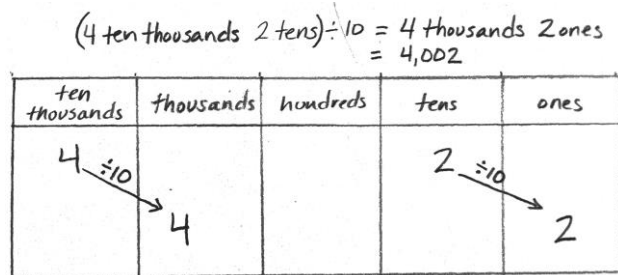 (4 ten thousands 2 tens)÷10 = 4 thousands 2 ones
= 4,002
ten thousands thousands hundreds tens ones
4 ÷10 2 ÷10
4 2